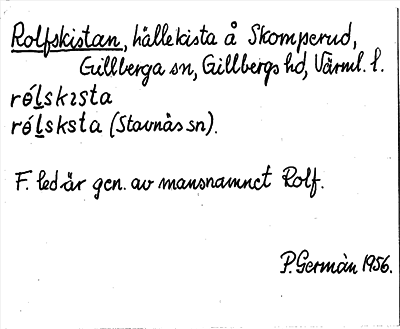 Rolfskistan, hällekista å Skomperud,
Gillberga sn, Gillbergs hd, Värml. l.
rólskısta
rólsksta (Stavnäs sn).
F. led är gen. av mansnamnet Rolf.
P. Germàn 1956.